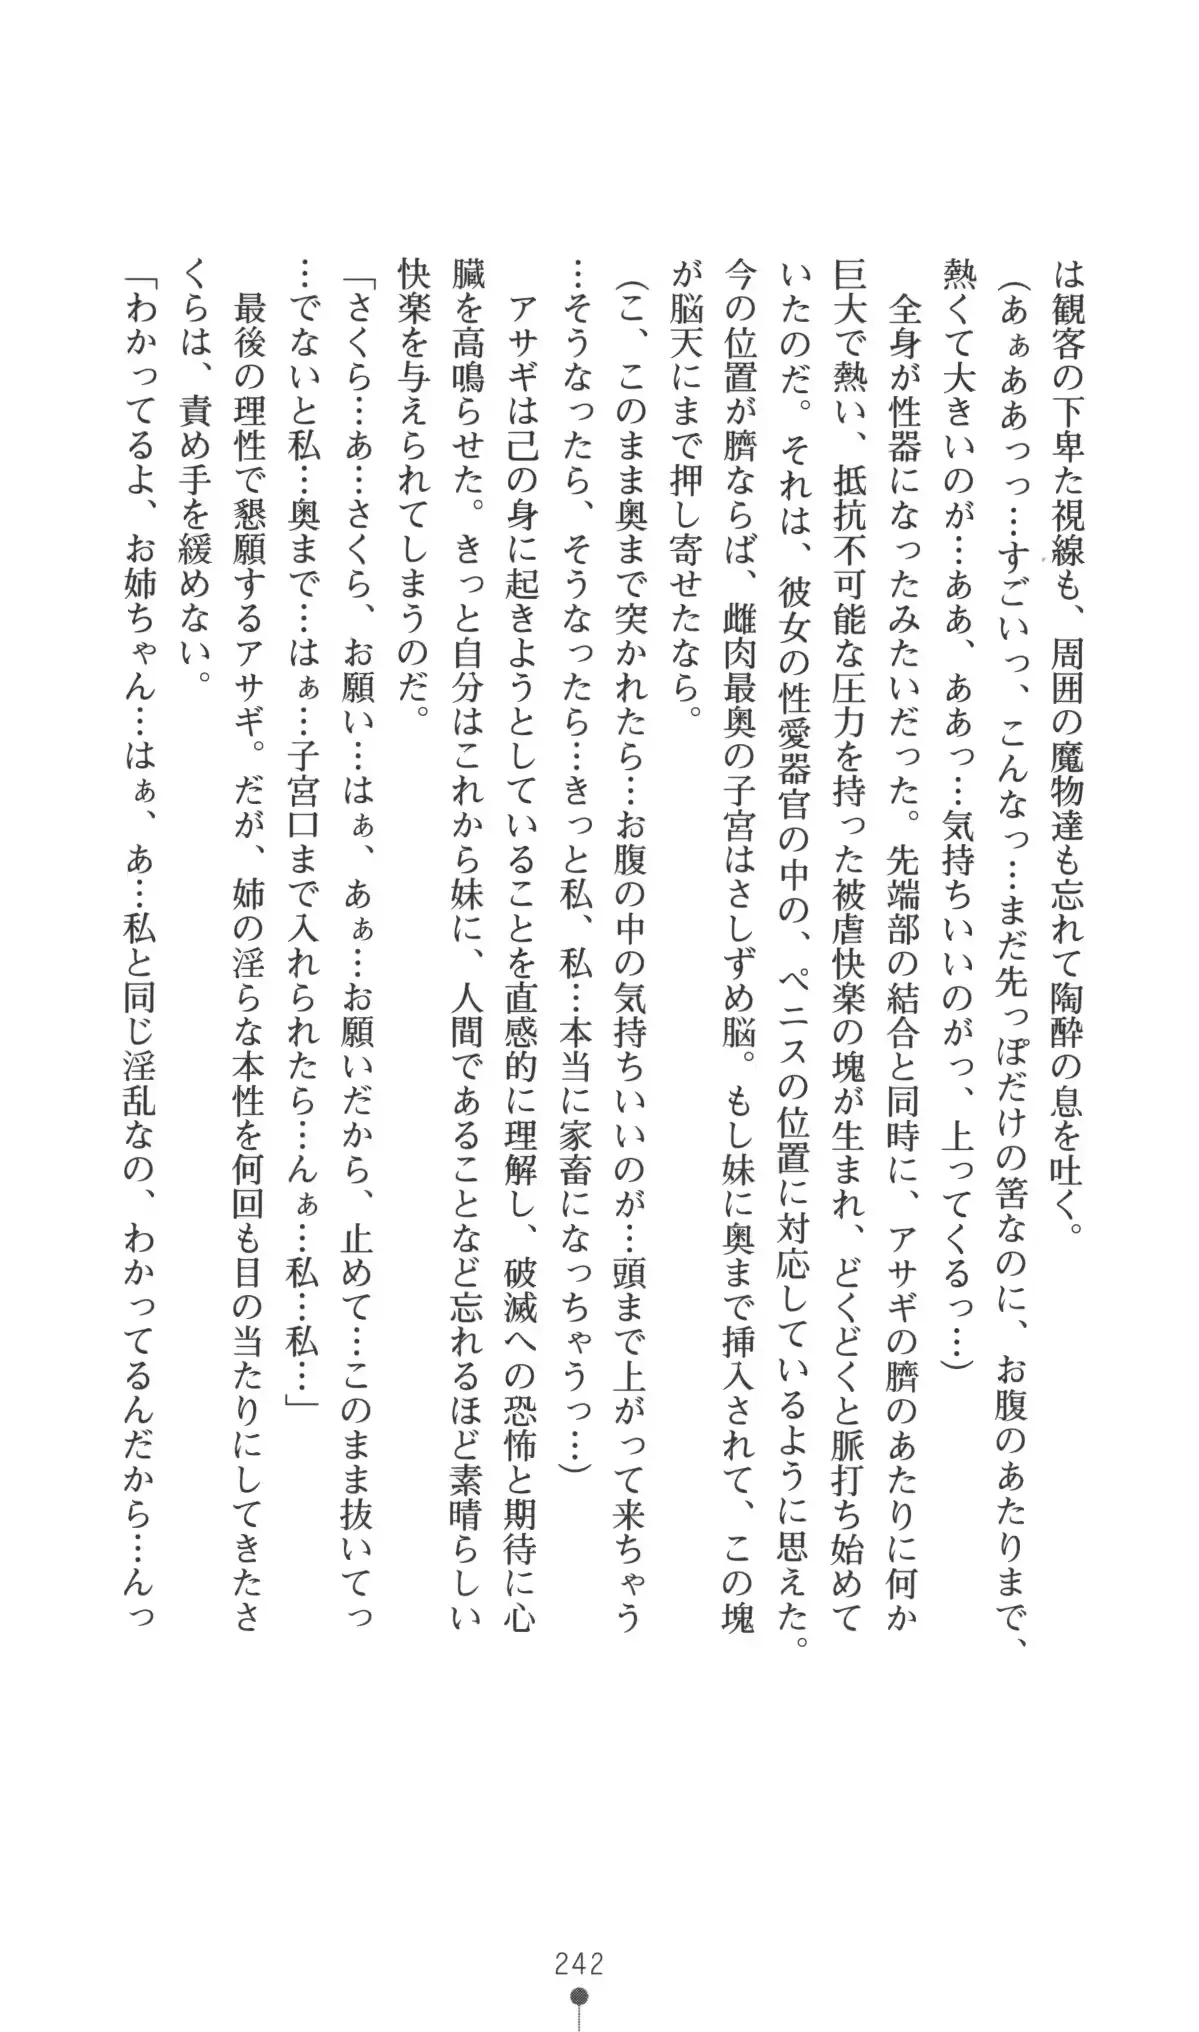 は観客の下卑た視線も、周囲の魔物達も忘れて陶酔の息を吐く。
（あぁああっっ…すごいっ、こんなっ…まだ先っぽだけの筈なのに、お腹のあたりまで、
熱くて大きいのが…ああ、ああっ…気持ちいいのがっ、上ってくるっ…）
　全身が性器になったみたいだった。先端部の結合と同時に、アサギの臍のあたりに何か
巨大で熱い、抵抗不可能な圧力を持った被虐快楽の塊が生まれ、どくどくと脈打ち始めて
いたのだ。それは、彼女の性愛器官の中の、ペニスの位置に対応しているように思えた。
今の位置が臍ならば、雌肉最奥の子宮はさしずめ脳。もし妹に奥まで挿入されて、この塊
が脳天にまで押し寄せたなら。
（こ、このまま奥まで突かれたら…お腹の中の気持ちいいのが…頭まで上がって来ちゃう
…そうなったら、そうなったら…きっと私、私…本当に家畜になっちゃうっ…）
　アサギは己の身に起きようとしていることを直感的に理解し、破滅への恐怖と期待に心
臓を高鳴らせた。きっと自分はこれから妹に、人間であることなど忘れるほど素晴らしい
快楽を与えられてしまうのだ。
「さくら…あ…さくら、お願い…はぁ、あぁ…お願いだから、止めて…このまま抜いてっ
…でないと私…奥まで…はぁ…子宮口まで入れられたら…んぁ…私…私…」
　最後の理性で懇願するアサギ。だが、姉の淫らな本性を何回も目の当たりにしてきたさ
くらは、責め手を緩めない。
「わかってるよ、お姉ちゃん…はぁ、あ…私と同じ淫乱なの、わかってるんだから…んっ
242